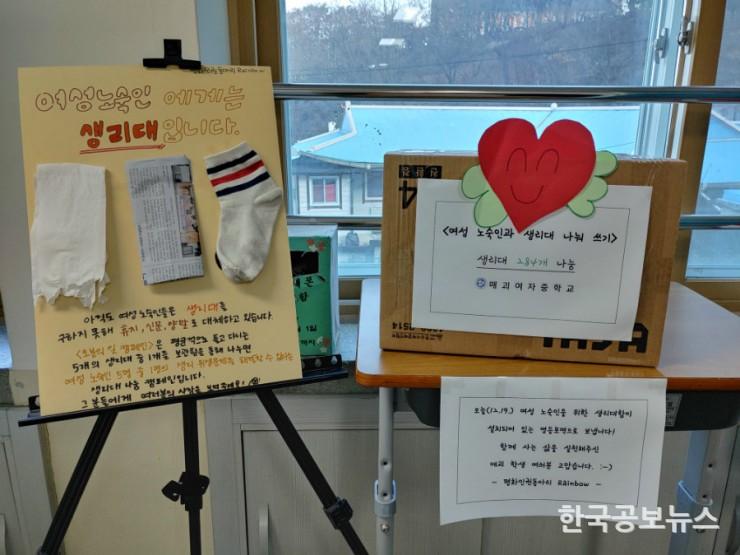 평화인권동아리 Rainbow
여성노숙인 에게는
생리대입니다.
아직도 여성 노숙인들은 생리대를
구하지 못해 휴지, 신문, 양말로 대체하고 있습니다.
캠페인>은 평균적으로 들고 다니는
5개의 생리대 중 1개를 보관함을 통해 나누면
여성 노숙인 5명 중 1명의 생리 위생문제를 해결할 수 있는
생리대 나눔 캠페인입니다.
그 분들에게 여러분의 사랑을 보여주세요!
<여성 노숙인과 생리대 나눠 쓰기>
생리대 284개 나눔
매괴여자중학교
오늘(12.19.) 여성 노숙인을 위한 생리대함이
설치되어 있는 영등포역으로 보냅니다!
함께 사는 삶을 실천해주신
매괴 학생 여러분 고맙습니다. :-)
- 평화인권동아리 RAinbow -
한국공보뉴스